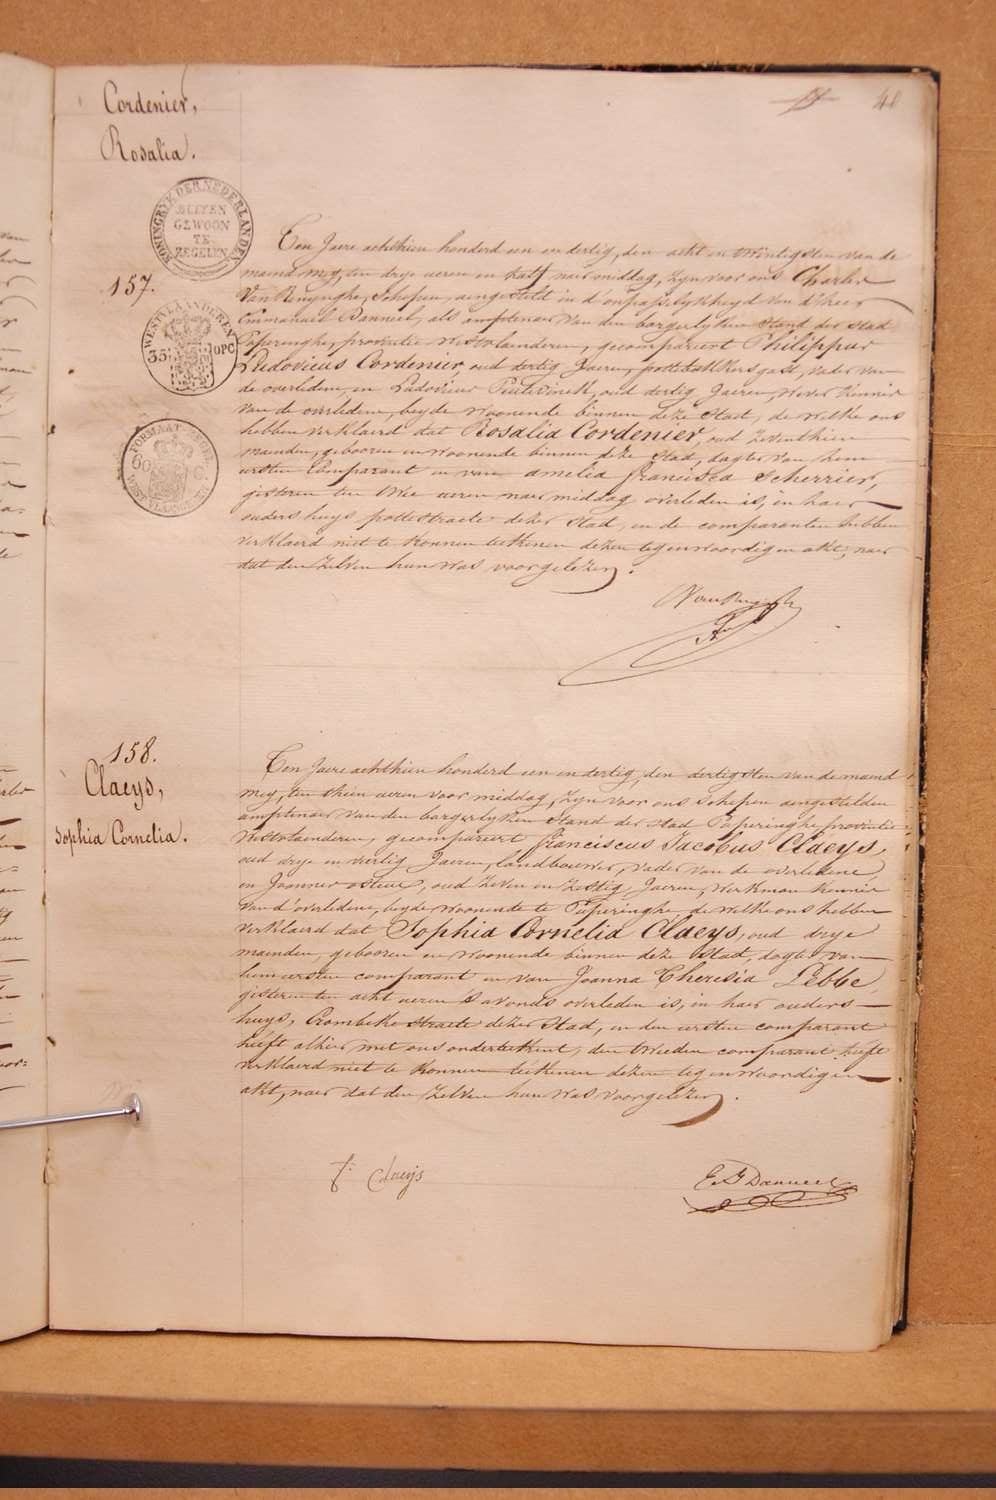 40
Cordenier,
Rosalia.
KONINGRYK DER NEDERLANDEN
BUITEN
GEWOON
TE
ZEGELEN
157.
WESTVLAANDEREN
35 OPC
FORMAAT ZEGEL
60 C
WEST VLAANDEREN
Ten Jaere achthien honderd een en dertig, den acht en twintigsten van de
maend mey, ten drye ueren en half naermiddag, zyn voor ons Charles
Van Renynghe, Schepen, aengesteld in d'onpasselykheyd van d'heer
Emmanuel Banneel, als amptenaer van den borgerlyken Stand der Stad
Poperinghe, provintie Westvlaenderen, gecompareert Philippus
Ludovicus Cordenier, oud dertig Jaeren, pottebakkersgast, vader van
de overledene, en Ludovicus oud dertig Jaeren, wever kennis
van de overledene, beyde woonende binnen deze Stad, de welke ons
hebben verklaerd dat Rosalia Cordenier, oud zeventhien
maenden, gebooren en woonende binnen deze Stad, dogter van hem
eersten Comparant en van amelia francisca Scherrier,
gisteren ten twee ueren naermiddag overleden is, in haer
ouders huys pottestraete dezer Stad, en de comparanten hebben
verklaerd niet te konnen teekenen dezen tegenwoordigen akt, naer
dat den zelven hun was voorgelezen.
158.
Claeys,
Sophia Cornelia.
Ten Jaere achthien honderd een en dertig, den dertigsten van de maend
mey, ten thien ueren voor middag, zyn voor ons Schepen aengestelden
amptenaer van den borgerlyken Stand der Stad Poperinghe provintie
Westvlaenderen, gecompareert franciscus Jacobus Claeys,
oud drye en veertig Jaeren, landbouwer, vader van de overledene,
en Joannes oud zeven en zestig Jaeren, werkman kennis
van d'overledene, beyde woonende te Poperinghe de welke ons hebben
verklaerd dat Sophia Cornelia Claeys, oud drye
maenden, gebooren en woonende binnen deze Stad, dogter van
hem eersten comparant en van Joanna Theresia Lebbe,
gisteren ten acht ueren 's avonds overleden is, in haer ouders
huys, Crombeke straete dezer Stad, en den eersten comparant
heeft alhier met ons onderteekent, den tweeden comparant heeft
verklaerd niet te konnen teekenen dezen tegenwoordigen
akt, naer dat den zelven hun was voorgelezen.
f: Claeys